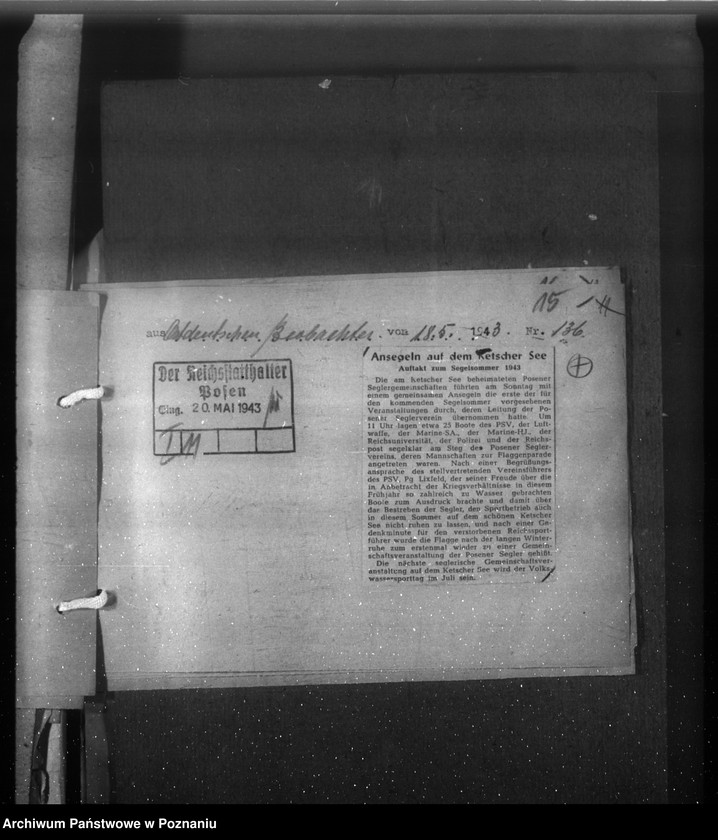 15
aus Ostdeutschen Beobachter. von 18.5. 1943. Nr. 136.
Der Reichsstatthalter
Posen
Eing. 20. MAI 1943
Ansegeln auf dem Ketscher See
Auftakt zum Segelsommer 1943
Die am Ketscher See beheimateten Posener
Seglergemeinschaften führten am Sonntag mit
einem gemeinsamen Ansegeln die erste der für
den kommenden Segelsommer vorgesehenen
Veranstaltungen durch, deren Leitung der Po-
sener Seglerverein übernommen hatte. Um
11 Uhr lagen etwa 25 Boote des PSV, der Luft-
waffe, der Marine-SA., der Marine-HJ., der
Reichsuniversität, der Polizei und der Reichs-
post segelklar am Steg des Posener Segler-
vereins, deren Mannschaften zur Flaggenparade
angetreten waren. Nach einer Begrüßungs-
ansprache des stellvertretenden Vereinsführers
des PSV, Pg Lixfeld, der seiner Freude über die
in Anbetracht der Kriegsverhältnisse in diesem
Frühjahr so zahlreich zu Wasser gebrachten
Boote zum Ausdruck brachte und damit über
das Bestreben der Segler, den Sportbetrieb auch
in diesem Sommer auf dem schönen Ketscher
See nicht ruhen zu lassen, und nach einer Ge-
denkminute für den verstorbenen Reichssport-
führer wurde die Flagge nach der langen Winter-
ruhe zum erstenmal wieder zu einer Gemein-
schaftsveranstaltung der Posener Segler gehißt.
Die nächste seglerische Gemeinschaftsver-
anstaltung auf dem Ketscher See wird der Volks-
wassersporttag im Juli sein.
Archiwum Państwowe w Poznaniu